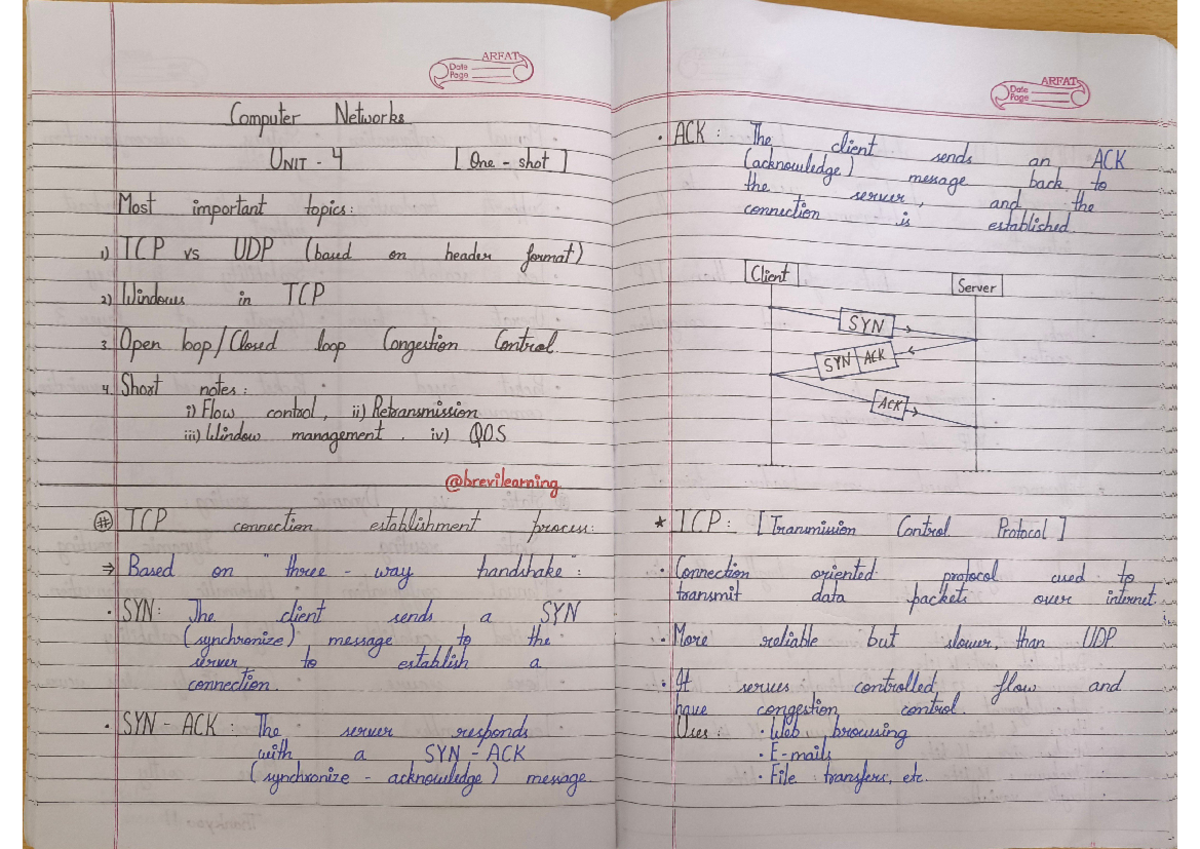 ARFAT
Date
Page
Computer Networks
UNIT - 4 [One - shot]
Most important topics:
1) TCP vs UDP (based on header format)
2) Windows in TCP
3. Open loop/Closed loop Congestion Control
4. Short notes:
i) Flow control, ii) Retransmission
iii) Window management. iv) QOS
@brevilearning
# TCP connection establishment process:
⇒ Based on "three - way handshake":
• SYN: The client sends a SYN
(synchronize) message to the
server to establish a
connection.
• SYN - ACK : The server responds
with a SYN - ACK
(synchronize - acknowledge) message.
ARFAT
Date
Page
• ACK : The client sends an ACK
(acknowledge) message back to
the server, and the
connection is established
Client
Server
SYN →
SYN ACK ←
ACK →
* TCP: [Transmission Control Protocol]
• Connection oriented protocol used to
transmit data packets over internet.
• More reliable but slower, than UDP.
• It serves controlled flow and
have congestion control.
Uses : • Web browsing
• E-mails
• File transfers, etc.